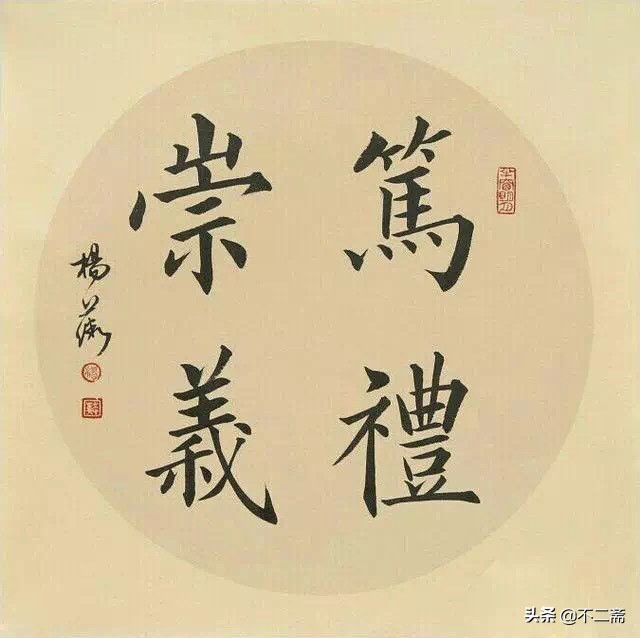 篤禮
崇義
楊
头条 @不二斋